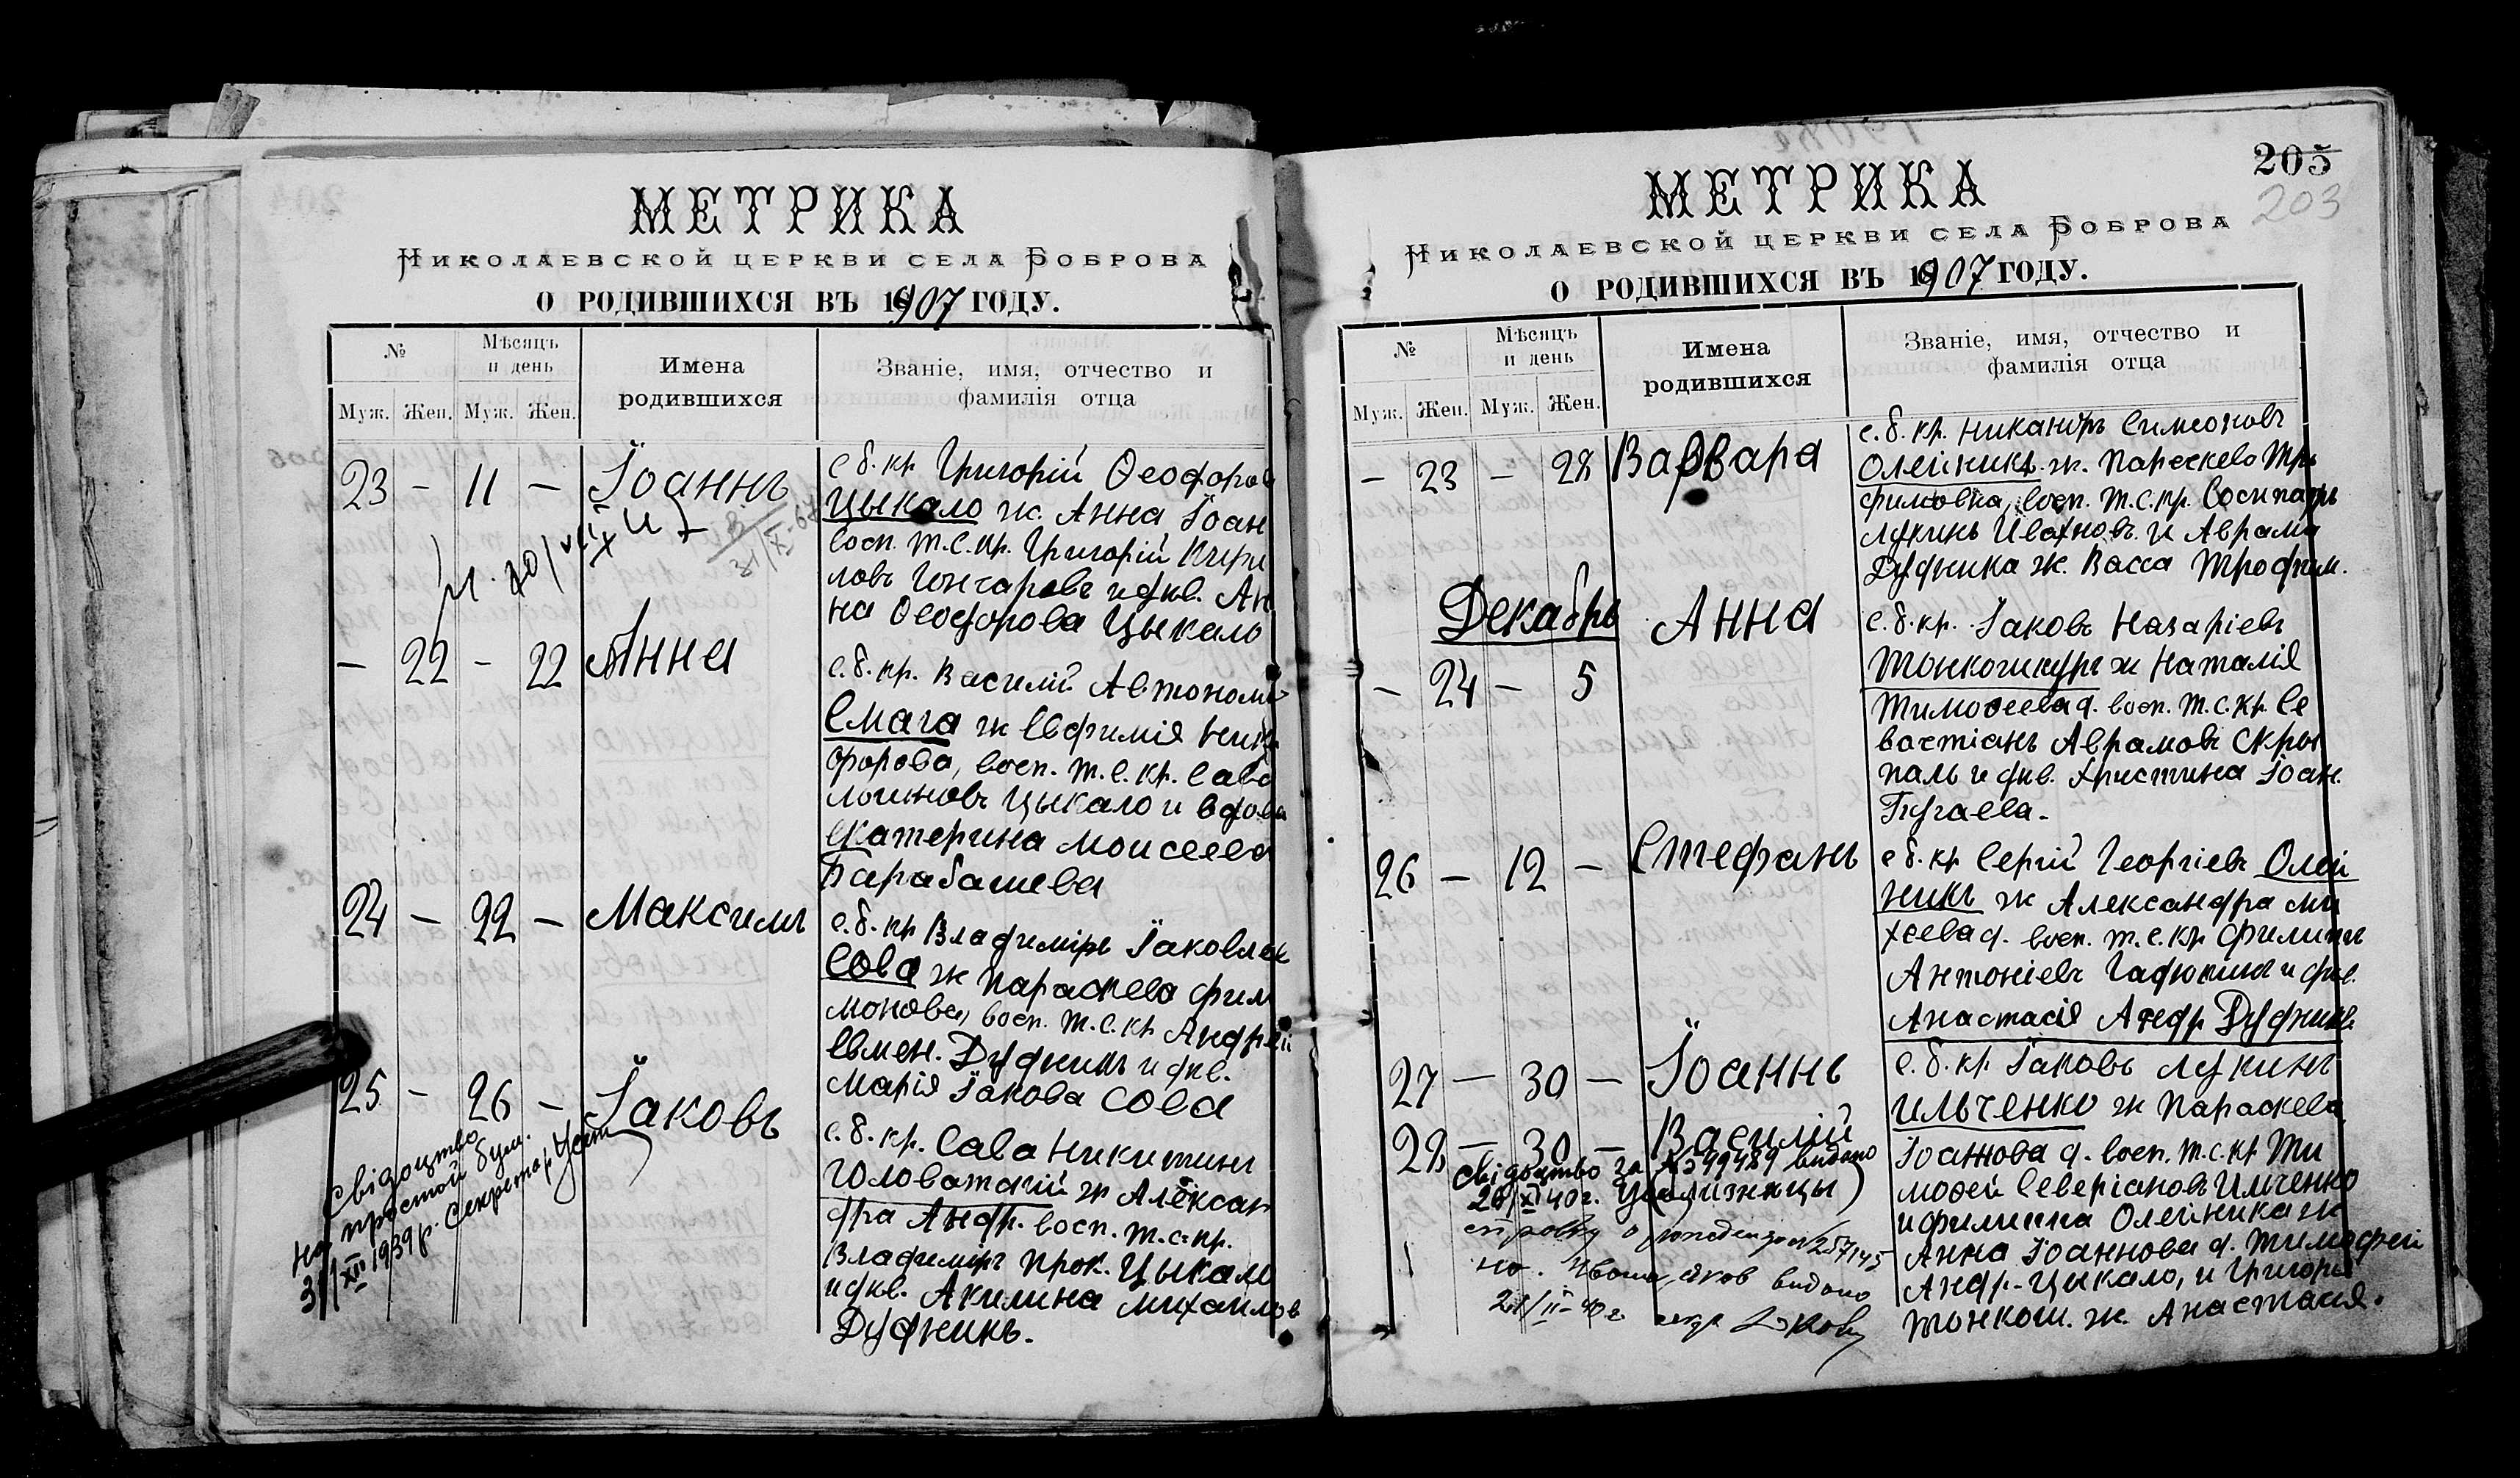 МЕТРИКА
Николаевской церкви села Боброва
О РОДИВШИХСЯ ВЪ 1907 ГОДУ.
№
Мѣсяцъ и день
Имена родившихся
Званіе, имя, отчество и фамилія отца
Муж. Жен. Муж. Жен.
23 - 11 - Іоаннъ
с. б. кр Григорій Ѳеодоров
Цыкало ж. Анна Іоан
восп. т. с. кр. Григорій Кири
ловъ Гончаровъ и дкв. Ан
на Ѳеодорова Цыкало
- 22 - 22 Анна
с. б. кр. Василій Автоном
Смага ж Евфимія Ники
форова, восп. т. с. кр. Сава
Цыкало и вдова
Екатерина Моисеева
Барабашева
24 - 22 - Максимъ
с. б. кр Владиміръ Іаковлев
Сова ж Параскева Фили
монова, восп. т. с. кр Андрей
Евмен. Дудникъ и дкв.
Марія Іакова Сова
25 - 26 - Іаковъ
с. б. кр. Сава Никитинъ
Головатскій ж Алексан
дра Андр. восп. т. с. кр.
Владиміръ Прок. Цыкало
и дкв. Акилина Михаилов
Дудникъ.
Свідоцтво
на простой бум.
31/XII 1939 р. Секретар
205
203
МЕТРИКА
Николаевской церкви села Боброва
О РОДИВШИХСЯ ВЪ 1907 ГОДУ.
№
Мѣсяцъ и день
Имена родившихся
Званіе, имя, отчество и фамилія отца
Муж. Жен. Муж. Жен.
- 23 - 28 Варвара
с. б. кр. Никандръ Симеоновъ
Олейникъ ж. Параскева Тро
фимовна, восп. т. с. кр. Сосипатръ
Лукинъ Ивахновъ. и Аврама
Дудника ж. Васса Трофим.
Декабрь
- 24 - 5 Анна
с. б. кр. Іаковъ Назаріевъ
Тонкошкуръ ж Наталія
Тимоѳеева д. восп. т. с. кр. Се
вастіанъ Авраmовъ Скры
паль и дкв. Христина Іоан.
Пугаева.
26 - 12 - Стефанъ
с б. кр Сергій Георгіевъ Олей
никъ ж Александра Ми
хеева д. восп. т. с. кр Филиппъ
Антоніевъ Гадюкинъ и дкв.
Анастасія Андр Дудникъ
27 - 30 - Іоаннъ
28 - 30 - Василій
с. б. кр Іаковъ Лукинъ
Ильченко ж Параскева
Іоаннова д. восп. т. с. кр Ти
моѳей Северіановъ Ильченко
и Филиппа Олейника ж
Анна Іоаннова д. Тимофей
Андр. Цыкало, и Григорія
Тонкош. ж. Анастасія.
Свідоцтво за № 549489 видано
20/XI 40 г. (близнецы)
видано
21/II-40 г